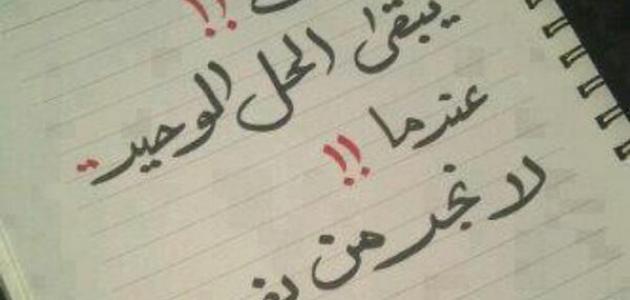 !!
يبقى الحل الوحيد ..
عندما !!
لا نجد من